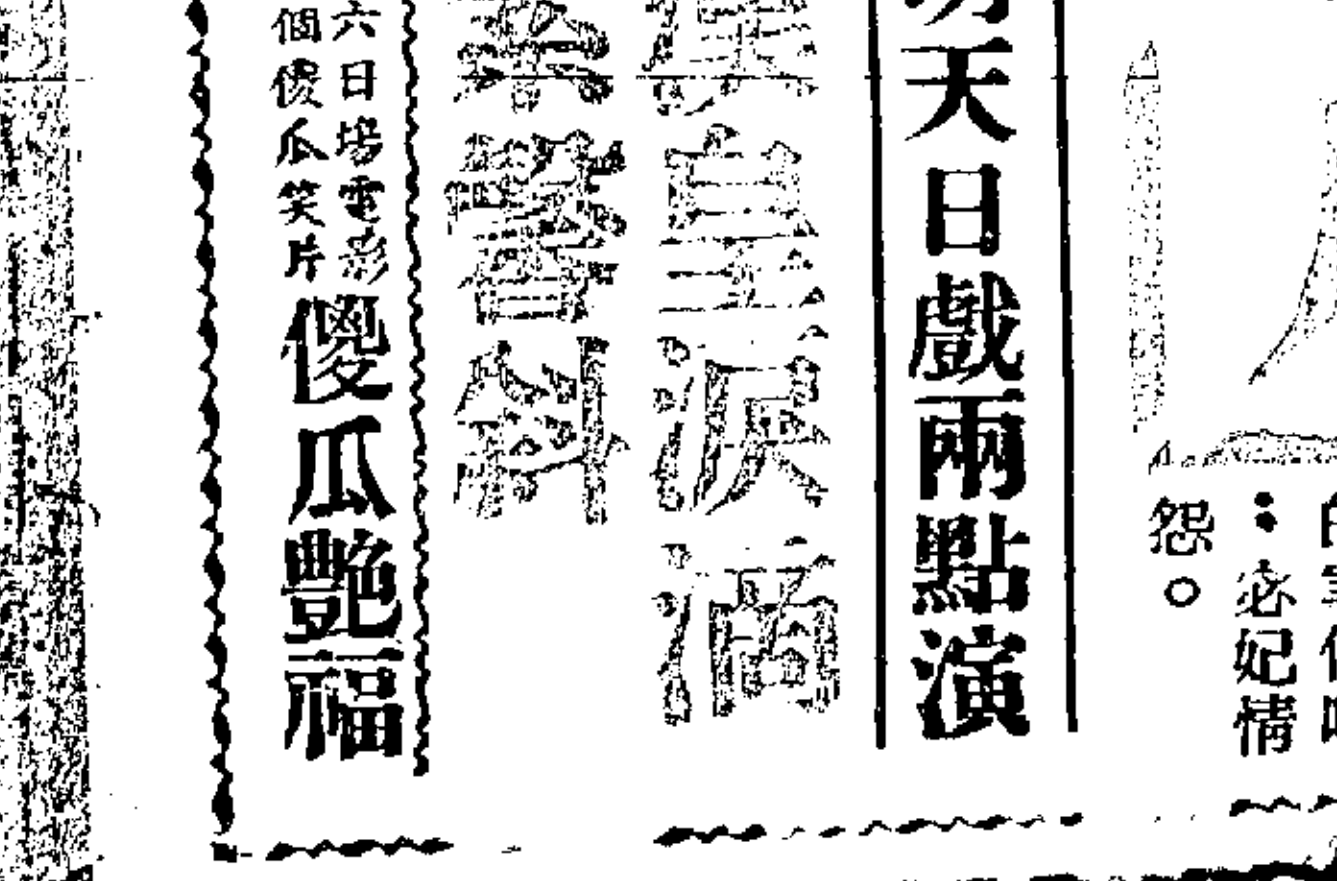 怨。
：宓妃情
天日戲兩點演
皇淚滴
聲斜
六日場電影
個傻瓜笑片
傻瓜艷福